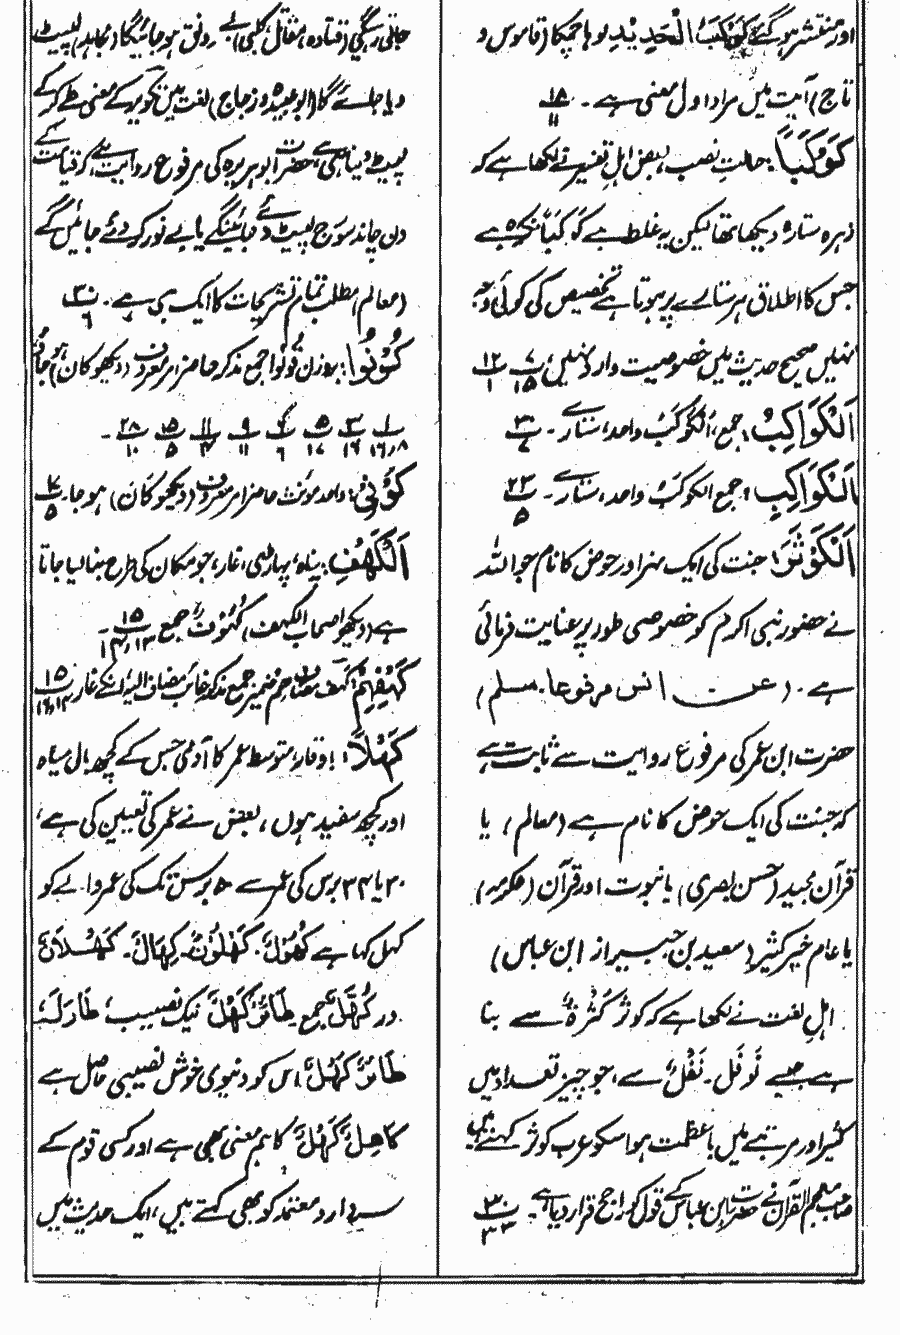 اور منتشر ہو گئے کَوْکَبُ الْحَدِیْدِ لوہا چمکا (قاموس و
تاج) آیت میں مراد اول معنی ہے۔ ۱۵/۱۱
کَوْکَبًا: حالتِ نصب، بعض اہلِ تفسیر نے لکھا ہے کہ
زہرہ ستارہ دیکھا تھا لیکن یہ غلط ہے کَوْکَبًا نکرہ ہے
جس کا اطلاق ہر ستارے پر ہوتا ہے تخصیص کی کوئی وجہ
نہیں صحیح حدیث میں خصوصیت وارد نہیں، ۷/۱۵ ۱۲/۱
اَلْکَوَاکِبُ: جمع، اَلْکَوْکَبُ واحد، ستارے۔
اَلْکَوَاکِبِ: جمع الکوکب واحد، ستارے۔ ۲۳/۵
اَلْکَوْثَرَ: جنت کی ایک نہر اور حوض کا نام جو اللہ
نے حضور نبی اکرم کو خصوصی طور پر عنایت فرمائی
ہے۔ (عن انس مرفوعا۔ مسلم)
حضرت ابن عمر کی مرفوع روایت سے ثابت ہے
کہ جنت کی ایک حوض کا نام ہے (معالم) یا
قرآن مجید (حسن بصری) یا نبوت اور قرآن (عکرمہ)
یا عام خیر کثیر (سعید بن جبیر از ابن عباس)
اہلِ لغت نے لکھا ہے کہ کوثر کَثْرَۃٌ سے بنا
ہے جیسے نَوْفَل۔ نَفْلٌ سے، جو چیز تعداد میں
کثیر اور مرتبے میں با عظمت ہو اسکو عرب کوثر کہتے ہیں
صاحب معجم القرآن نے حضرت ابن عباس کے قول کو راجح قرار دیا ہے۔ ۳۰/۳۳
جاتی رہیگی (قتادہ، مقاتل، کلبی) بے رونق ہو جائیگا (مجاہد) لپیٹ
دیا جائے گا (ابو عبیدہ و زجاج) لغت میں تکویر کے معنی طے کر کے
لپیٹ دینا ہی ہے، حضرت ابو ہریرہ کی مرفوع روایت ہے، کہ قیامت کے
دن چاند سورج لپیٹ دئے جائینگے یا بے نور کر دئے جائیں گے
(معالم) مطلب تمام تشریحات کا ایک ہی ہے۔ ۳۰/۶
کُوْنُوْا: بروزن قُوْلُوْا جمع مذکر حاضر امر معروف (دیکھو کان) ہو جاؤ
۱/۸،۱۶ ۳/۱۶ ۵/۱۷ ۶/۶ ۹/۱۱ ۱۱/۴ ۱۵/۵ ۲۸/۱۰۔
کُوْنِیْ: واحد مؤنث حاضر امر معروف (دیکھو کَانَ) ہو جا۔ ۱۷/۵
اَلْکَهْفِ: پناہ، پہاڑی، غار، جو مکان کی طرح بنا لیا جاتا
ہے (دیکھو اصحاب الکہف) کُهُوْفٌ جمع ۱۵/۱۳،۱۴۔
کَهْفِهِمْ: کَهْف مضاف هِمْ ضمیر جمع مذکر غائب مضاف الیہ، انکے غار ۱۵
کَهْلًا: با وقار، متوسط عمر کا آدمی جس کے کچھ بال سیاہ
اور کچھ سفید ہوں، بعض نے عمر کی تعیین کی ہے،
۳۰ یا ۳۴ برس کی عمر سے ۵۰ برس تک کی عمر والے کو
کہل کہا ہے کُهُوْلٌ۔ کَهْلُوْنَ۔ کِهَالٌ۔ کَهْلَانٌ
در کُهَّلٌ جمع طَائِرٌ کَهْلٌ نیک نصیب، طَارَ لَہٗ
طَائِرٌ کَهْلٌ، اس کو دنیوی خوش نصیبی حاصل ہے
کَاهِلٌ کَهْلٌ کا ہم معنی بھی ہے اور کسی قوم کے
سردار و معتمد کو بھی کہتے ہیں، ایک حدیث میں